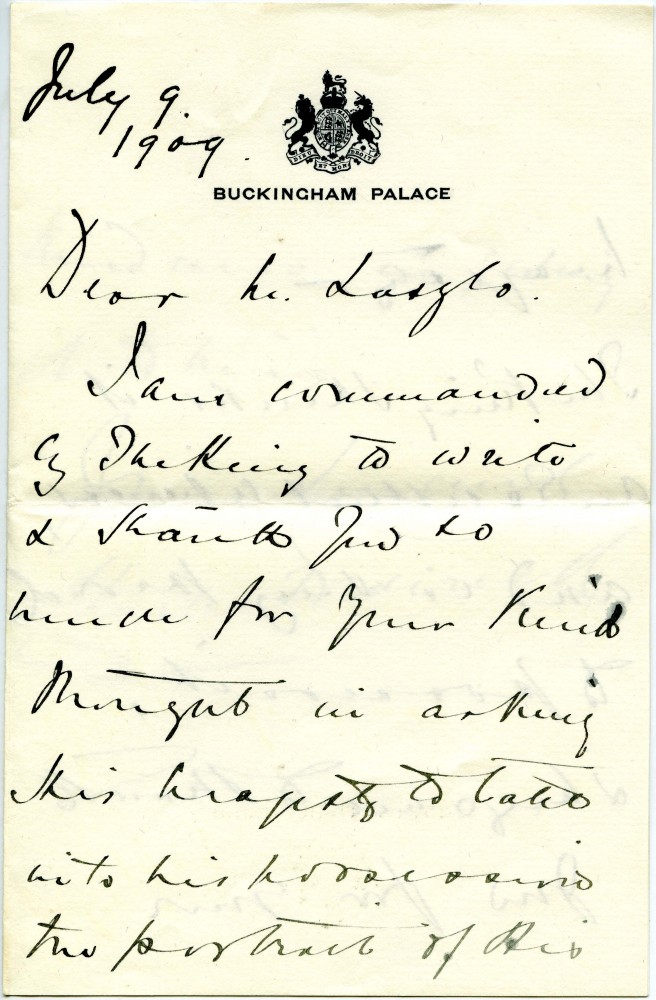 July 9.
1909.
BUCKINGHAM PALACE
Dear Mr. Laszlo.
I am commanded
by The King to write
& thank you so
much for your kind
thought in asking
His Majesty to take
into his possession
the portrait of His